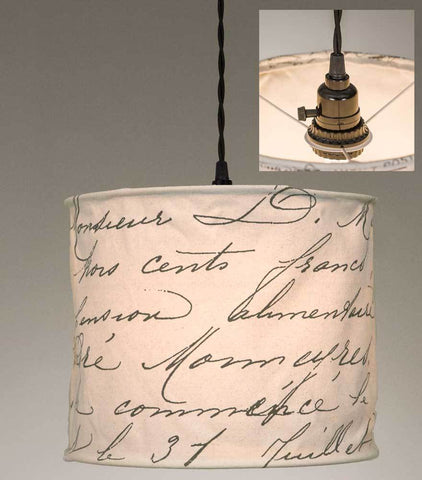 Monsieur D. M
trois cents francs
pension alimentaire
commencé le
le 31 Juillet